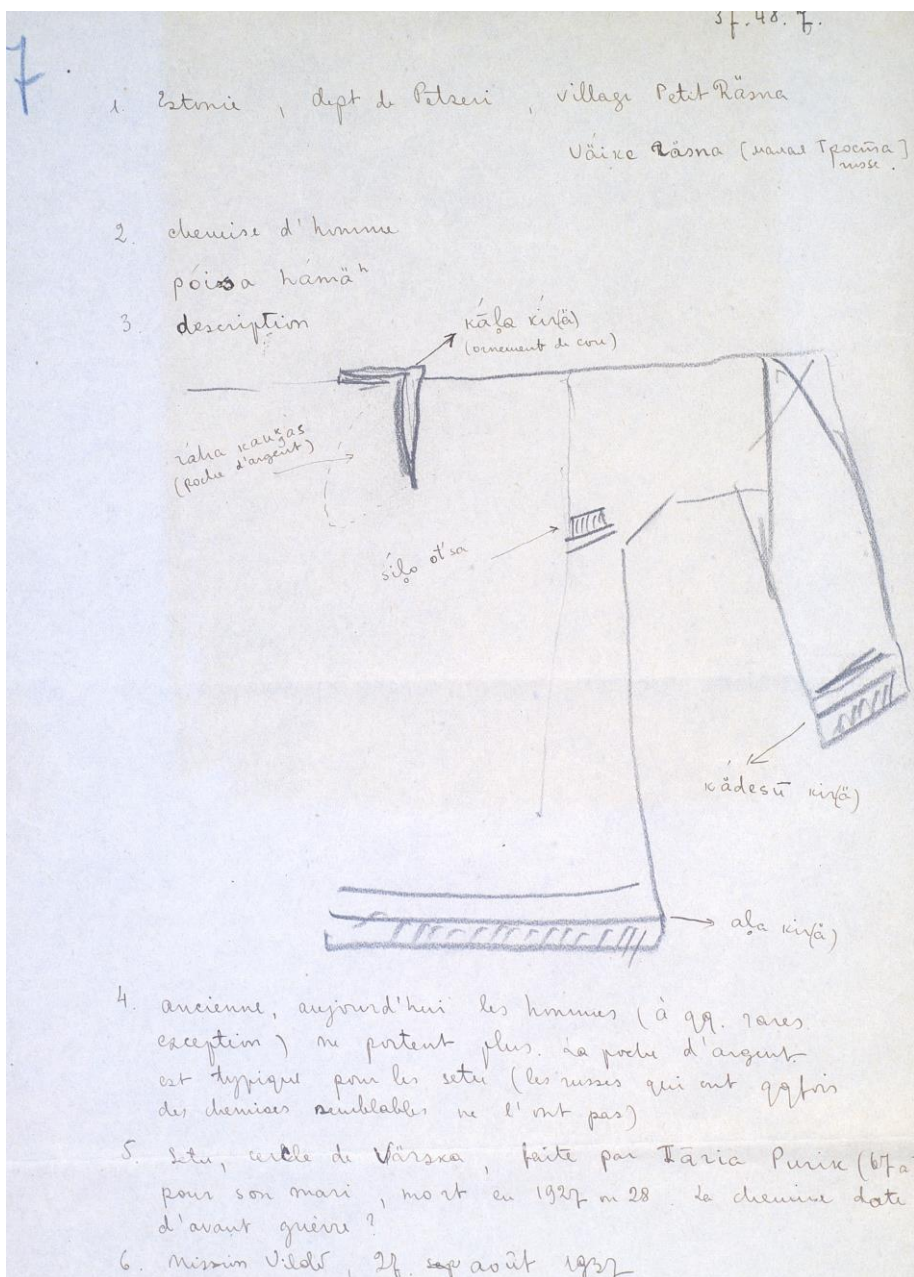 37.48.7.
7
1. Estonie, dept de Petseri, village Petit Räsna
Väike Räsna [малая Троста]
russe.
2. chemise d'homme
póissa hámäʰ
3. description
kāḷa kiŕ(ä)
(ornement de cou)
ráha kauxas
(poche d'argent)
síḷo ot́sa
kädesū kiŕ(ä)
aḷa kiŕ(ä)
4. ancienne, aujourd'hui les hommes (à qq. rares
exception) ne portent plus. La poche d'argent
est typique pour les setu (les russes qui ont qqfois
des chemises semblables ne l'ont pas)
5. Setu, cercle de Värska, faite par Taria Purik (67 a
pour son mari, mort en 1927 ou 28. La chemise date
d'avant guerre?
6. Mission Vildé, 27. août 1937